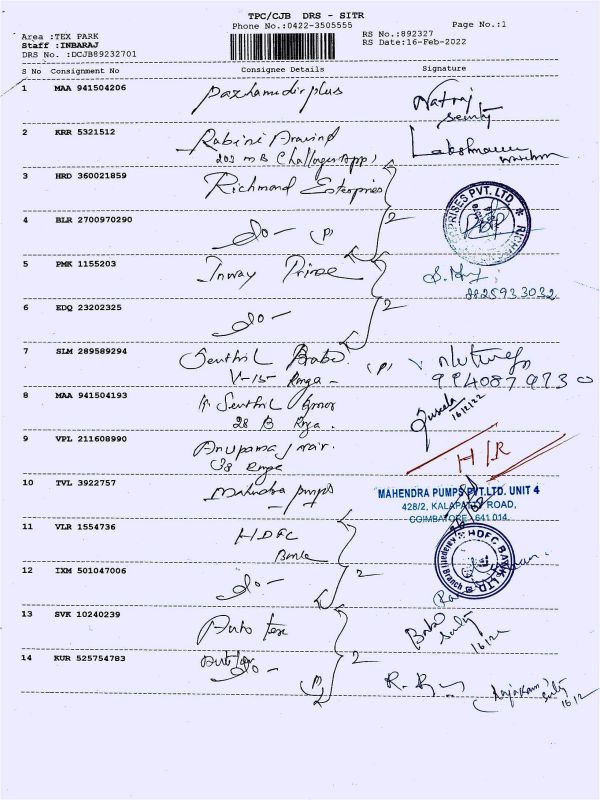 TPC/CJB DRS - SITR
Phone No.:0422-3505555
Page No.:1
Area :TEX PARK
Staff :INBARAJ
DRS No. :DCJB89232701
RS No.:892327
RS Date:16-Feb-2022
S No Consignment No Consignee Details Signature
1 MAA 941504206 Pazhamudirplus Natraj
2 KRR 5321512 Rabini Aravind Lakshmanan
202
3 HRD 360021859 Richmond Enterprises
PRISES PVT. LTD
4 BLR 2700970290 do - (P) 2
5 PMK 1155203 Inway Prince
8825933032
6 EDQ 23202325 do - 2
7 SLM 289589294 Senthil Babu (P)
V-15- Ringa -
9940879730
8 MAA 941504193 Senthil
28 B Ringa.
16/2/22
9 VPL 211608990 Anupama Nair.
38 Ringa
H/R
10 TVL 3922757 Mahendra pumps
MAHENDRA PUMPS PVT.LTD. UNIT 4
428/2, KALAPATTI ROAD,
COIMBATORE - 641 014.
11 VLR 1554736 HDFC
Bank
HDFC BANK LTD.
Kalapatti Branch
12 IXM 501047006 do - 2
13 SVK 10240239 Auto tex Babu
16/2
14 KUR 525754783 do - (P) 2
16/2